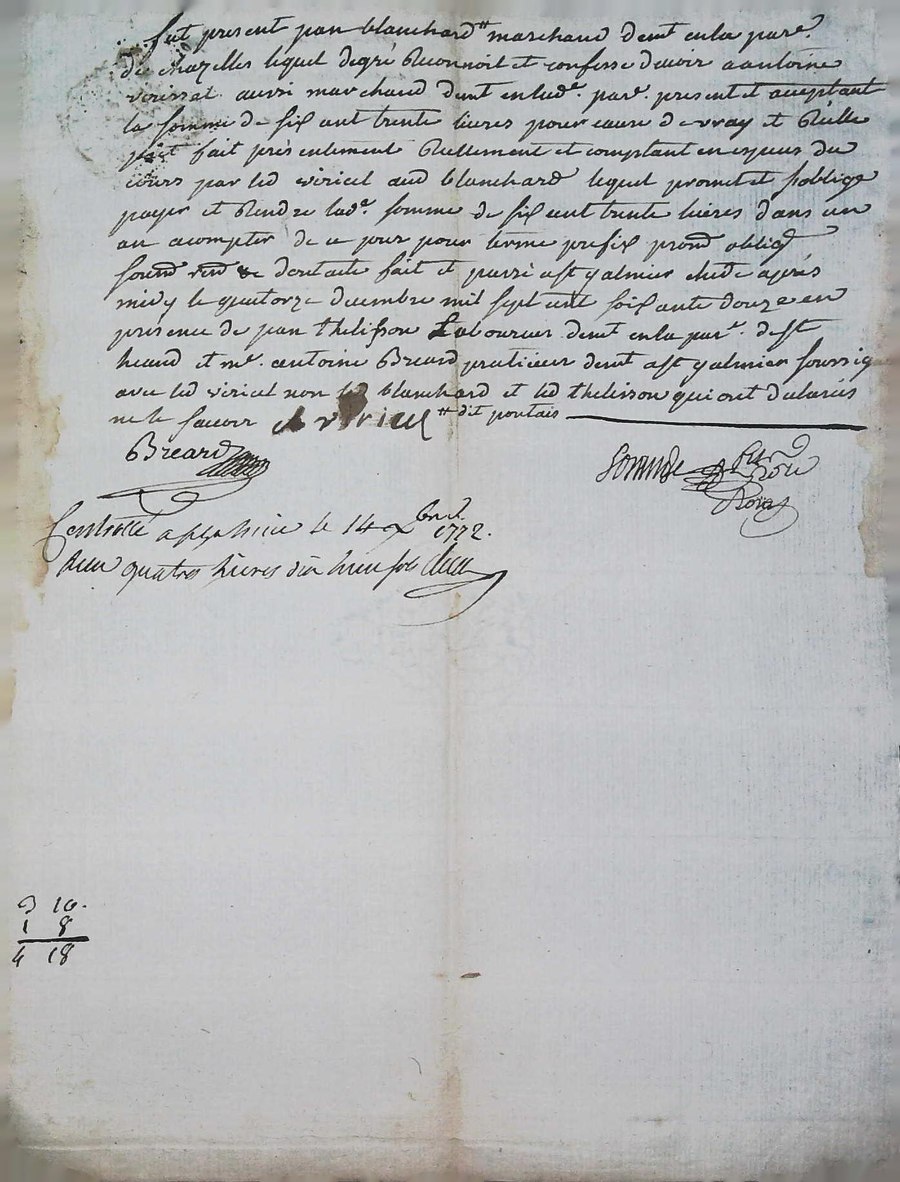 fut present jean blanchard ^tt marchand demt en la parse.
de chazelles lequel de gré Reconnoit et confesse devoir a antoine
viricel aussi marchand demt en lade. pare. present et acceptant
la somme de six cent trente livres pour cause de vray et Réelle
prêt fait presentement Réellement et comptant en especes du
cours par led viricel aud blanchard lequel promet et soblige
payer et Rendre lade. somme de six cent trente livres dans un
an a compter de ce jour pour terme prefix promd obligd
soumd rend dont acte fait et passé a st galmier etude après
midy le quatorze decembre mil sept cent soixante douze en
presence de jean thelisson Laboureur demt en la pare. de st
heand et me. antoine Breard praticien demt a st galmier soussig
avec led viricel non led blanchard et led thelisson qui ont declarés
ne le scavoir A viricel ^tt dit poulais
Breard
Controllé a st galmier le 14 xbre 1772.
Reçu quatres livres dix huit sols
3 10.
1 8
4 18